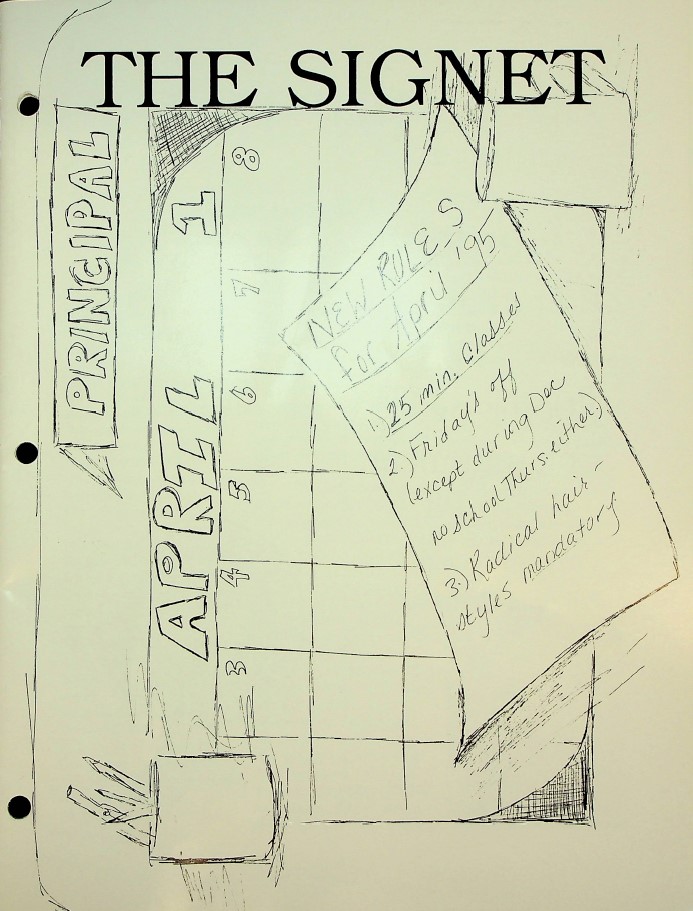 THE SIGNET
PRINCIPAL
APRIL 1
8
7
6
5
4
3
NEW RULES
for April '95
1.) 25 min. classes
2.) Friday's off
(except during Dec
no school Thurs. either.)
3.) Radical hair-
styles mandatory